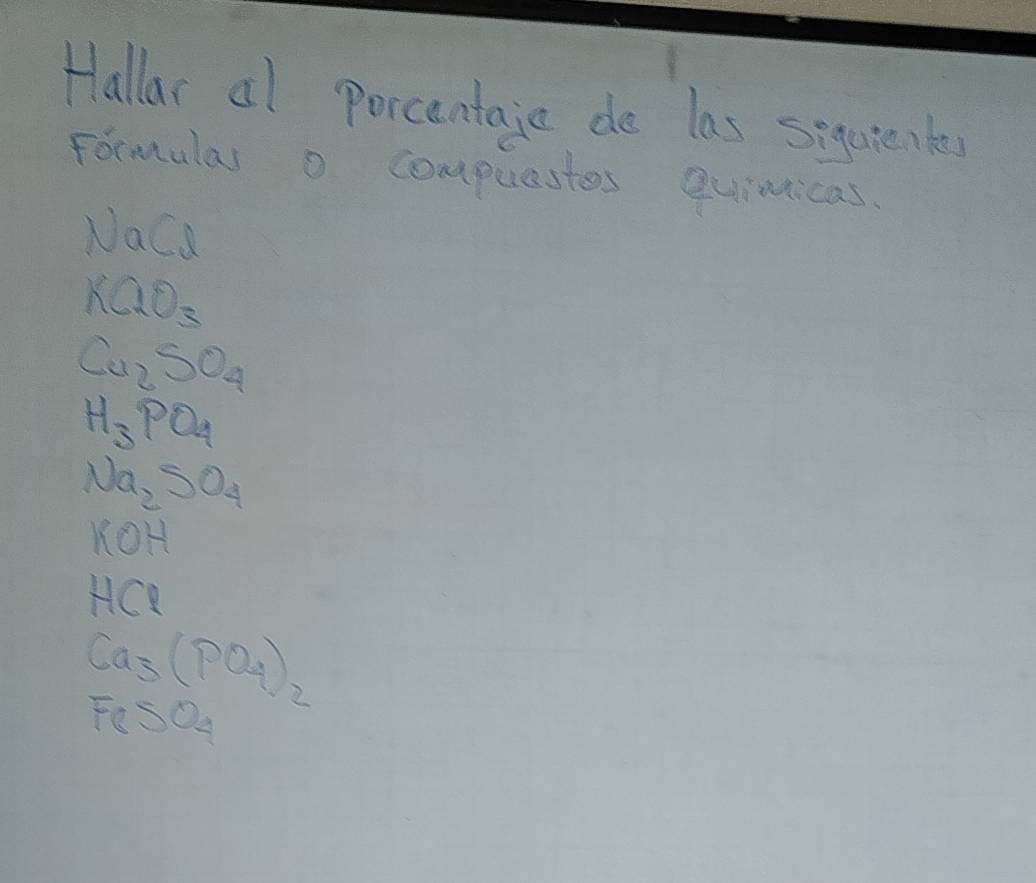 Hallar el Porcentaje de las Siguientes
Fórmulas o compuestos Químicas.
NaCl
KClO₃
Cu₂SO₄
H₃PO₄
Na₂SO₄
KOH
HCl
Ca₃(PO₄)₂
FeSO₄